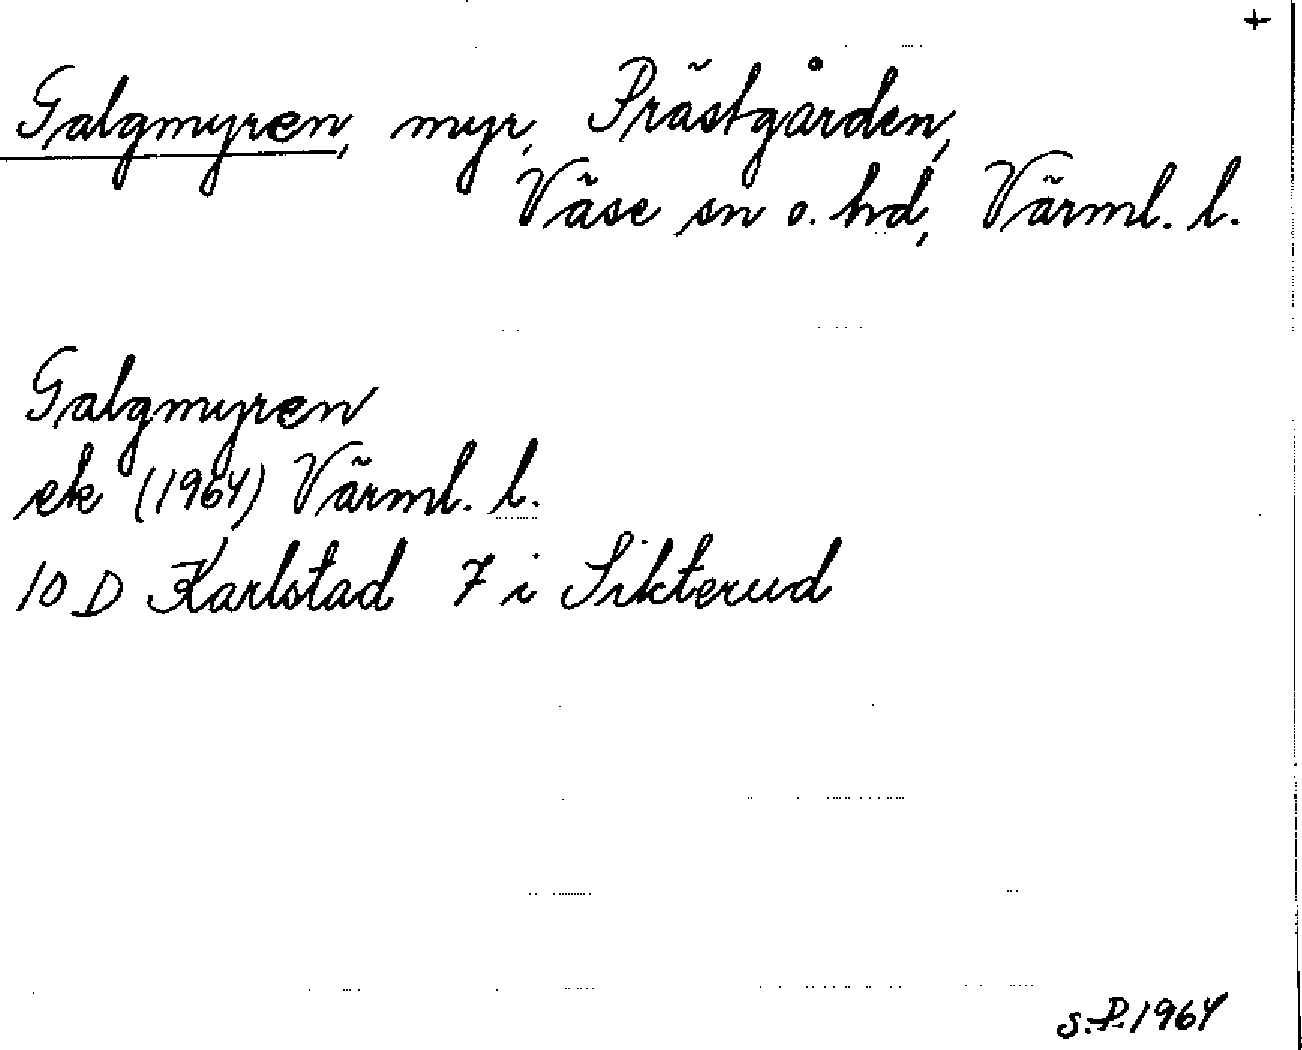 +
Galgmyren, myr, Prästgården,
Väse sn o. hd, Värml. l.
Galgmyren
ek (1964) Värml. l.
10 D Karlstad 7 i Sikterud
S.P. 1964